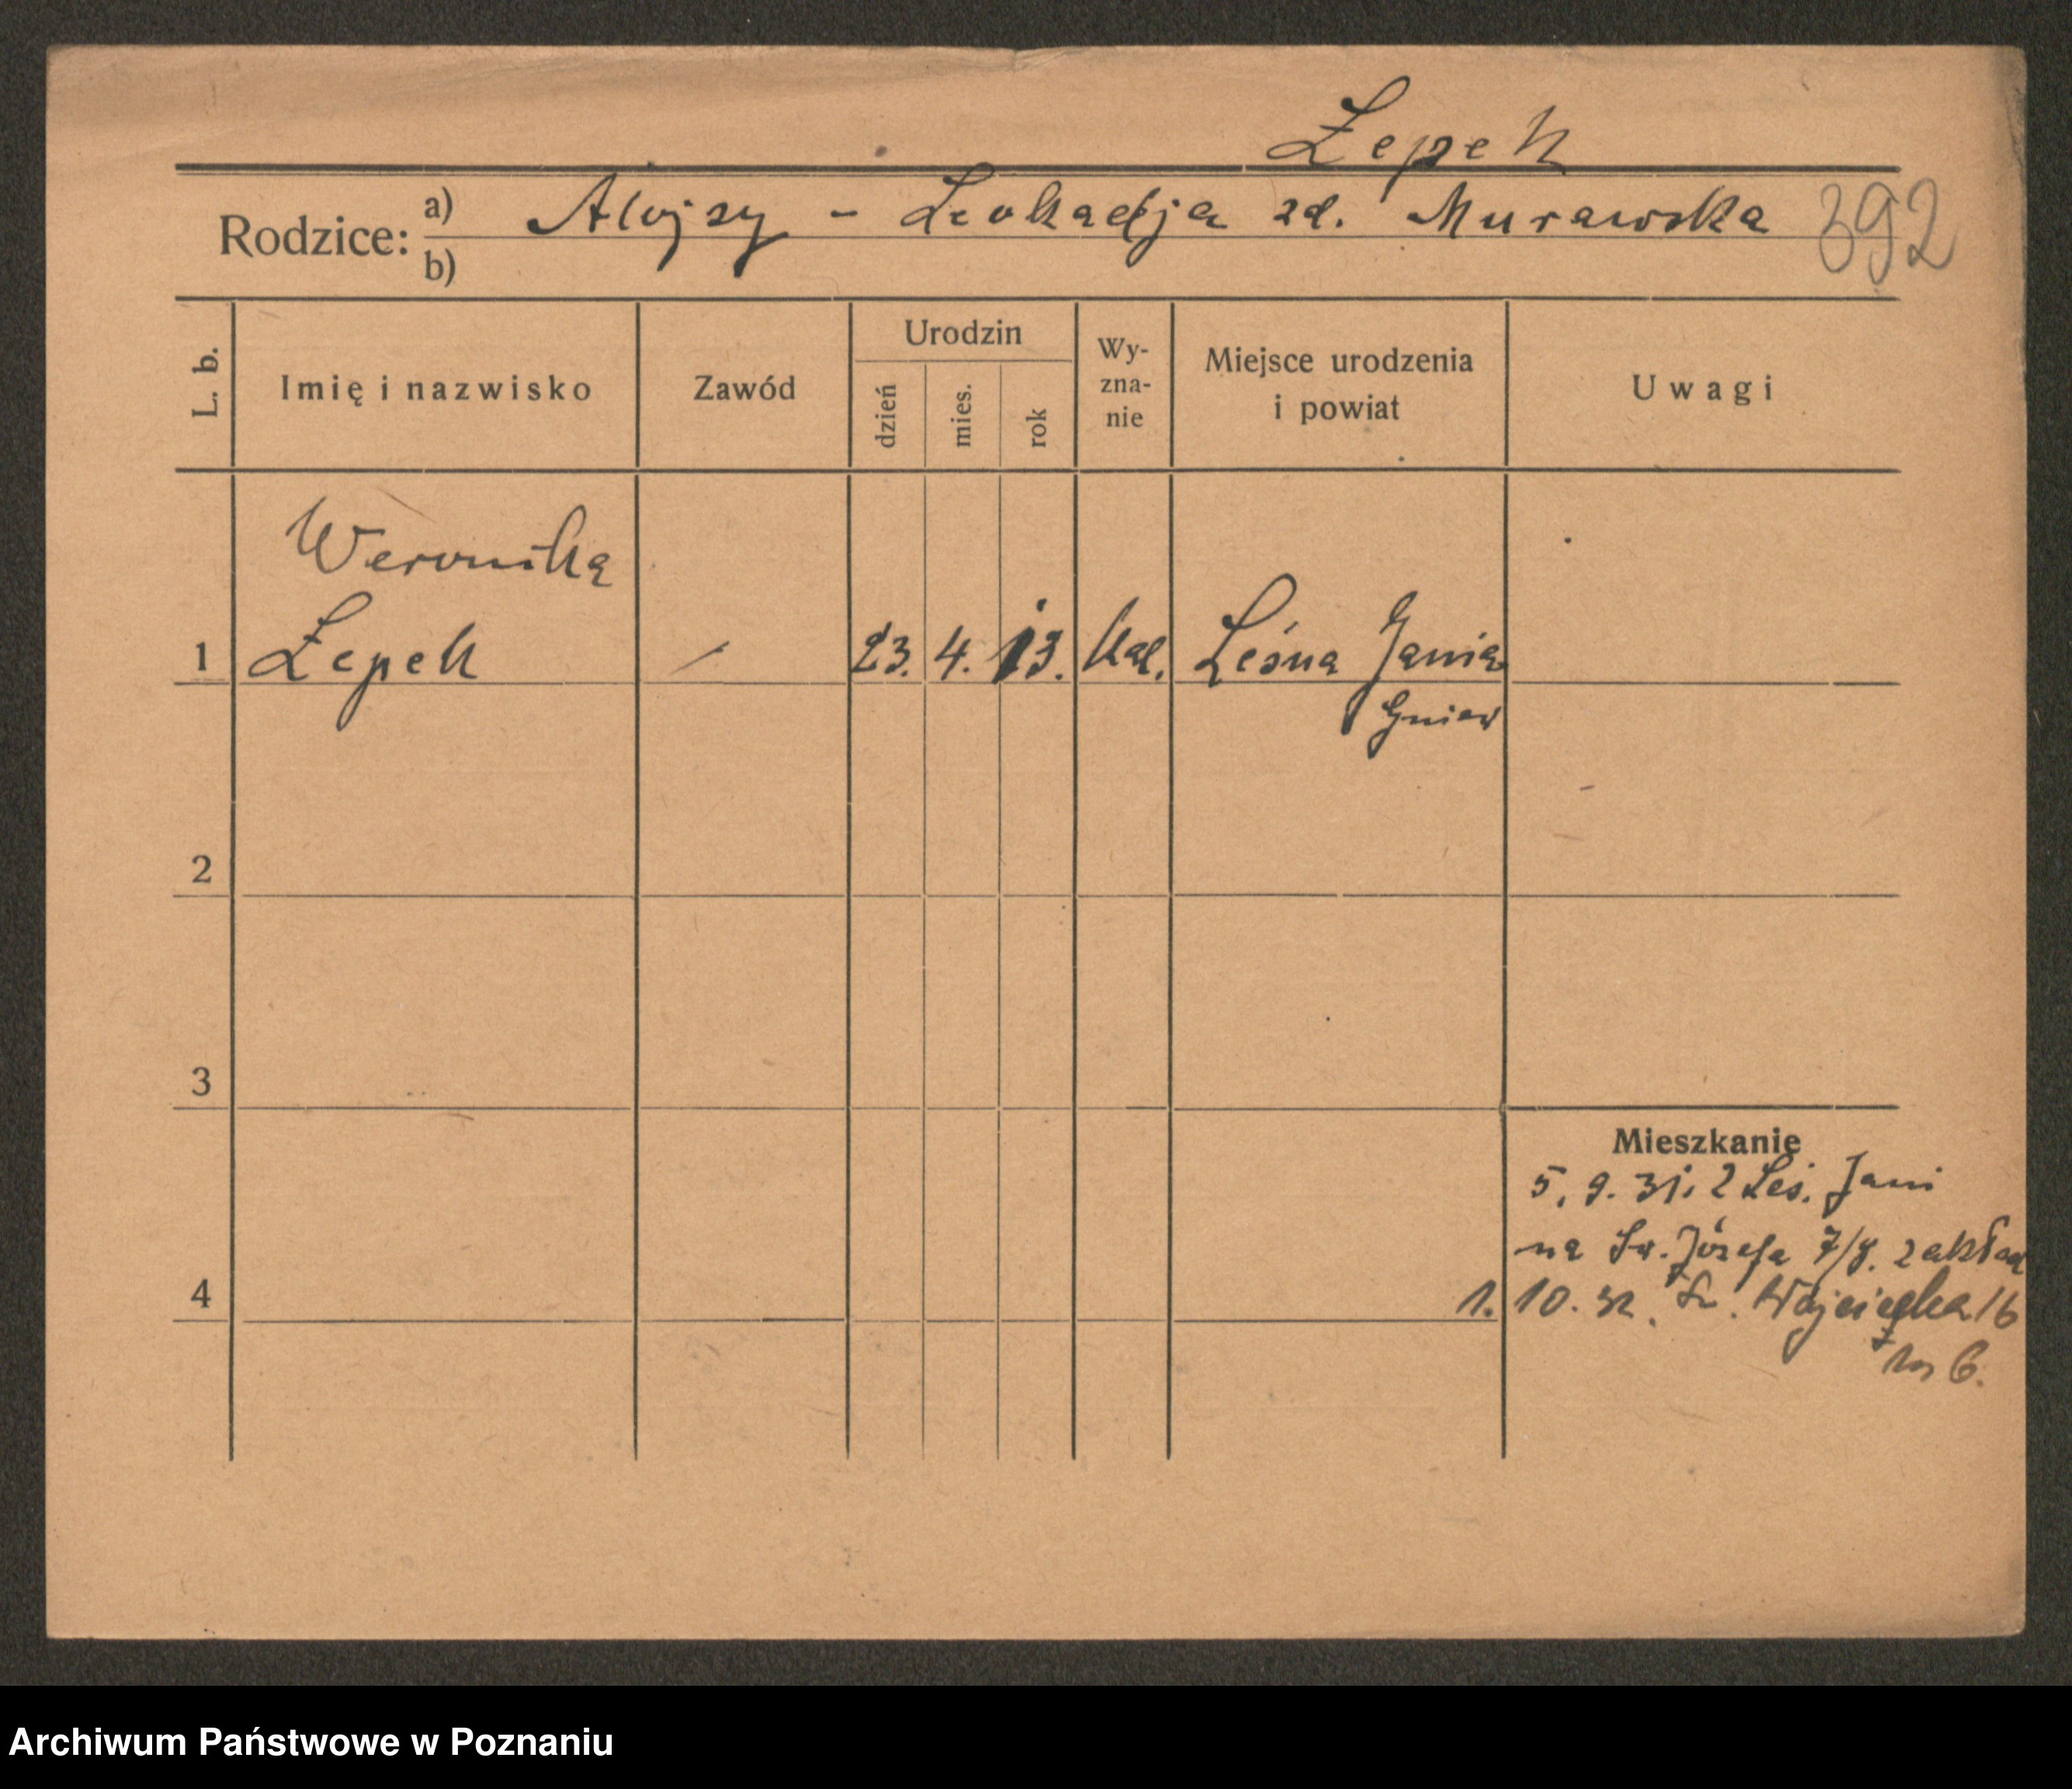 Łepek
Rodzice: a) Alojzy - Leokadja zd. Murawska 392
b)
L. b. Imię i nazwisko Zawód Urodzin dzień mies. rok Wy-zna-nie Miejsce urodzenia i powiat Uwagi
Weronika
1 Łepek 23. 4. 13. kat. Leśna Jania
Gniew
2
3
Mieszkanie
5. 9. 31. z Leś. Jani
na Św. Józefa 7/8. zakład
4 1. 10. 32. Św. Wojciecha 16
m 6.
Archiwum Państwowe w Poznaniu